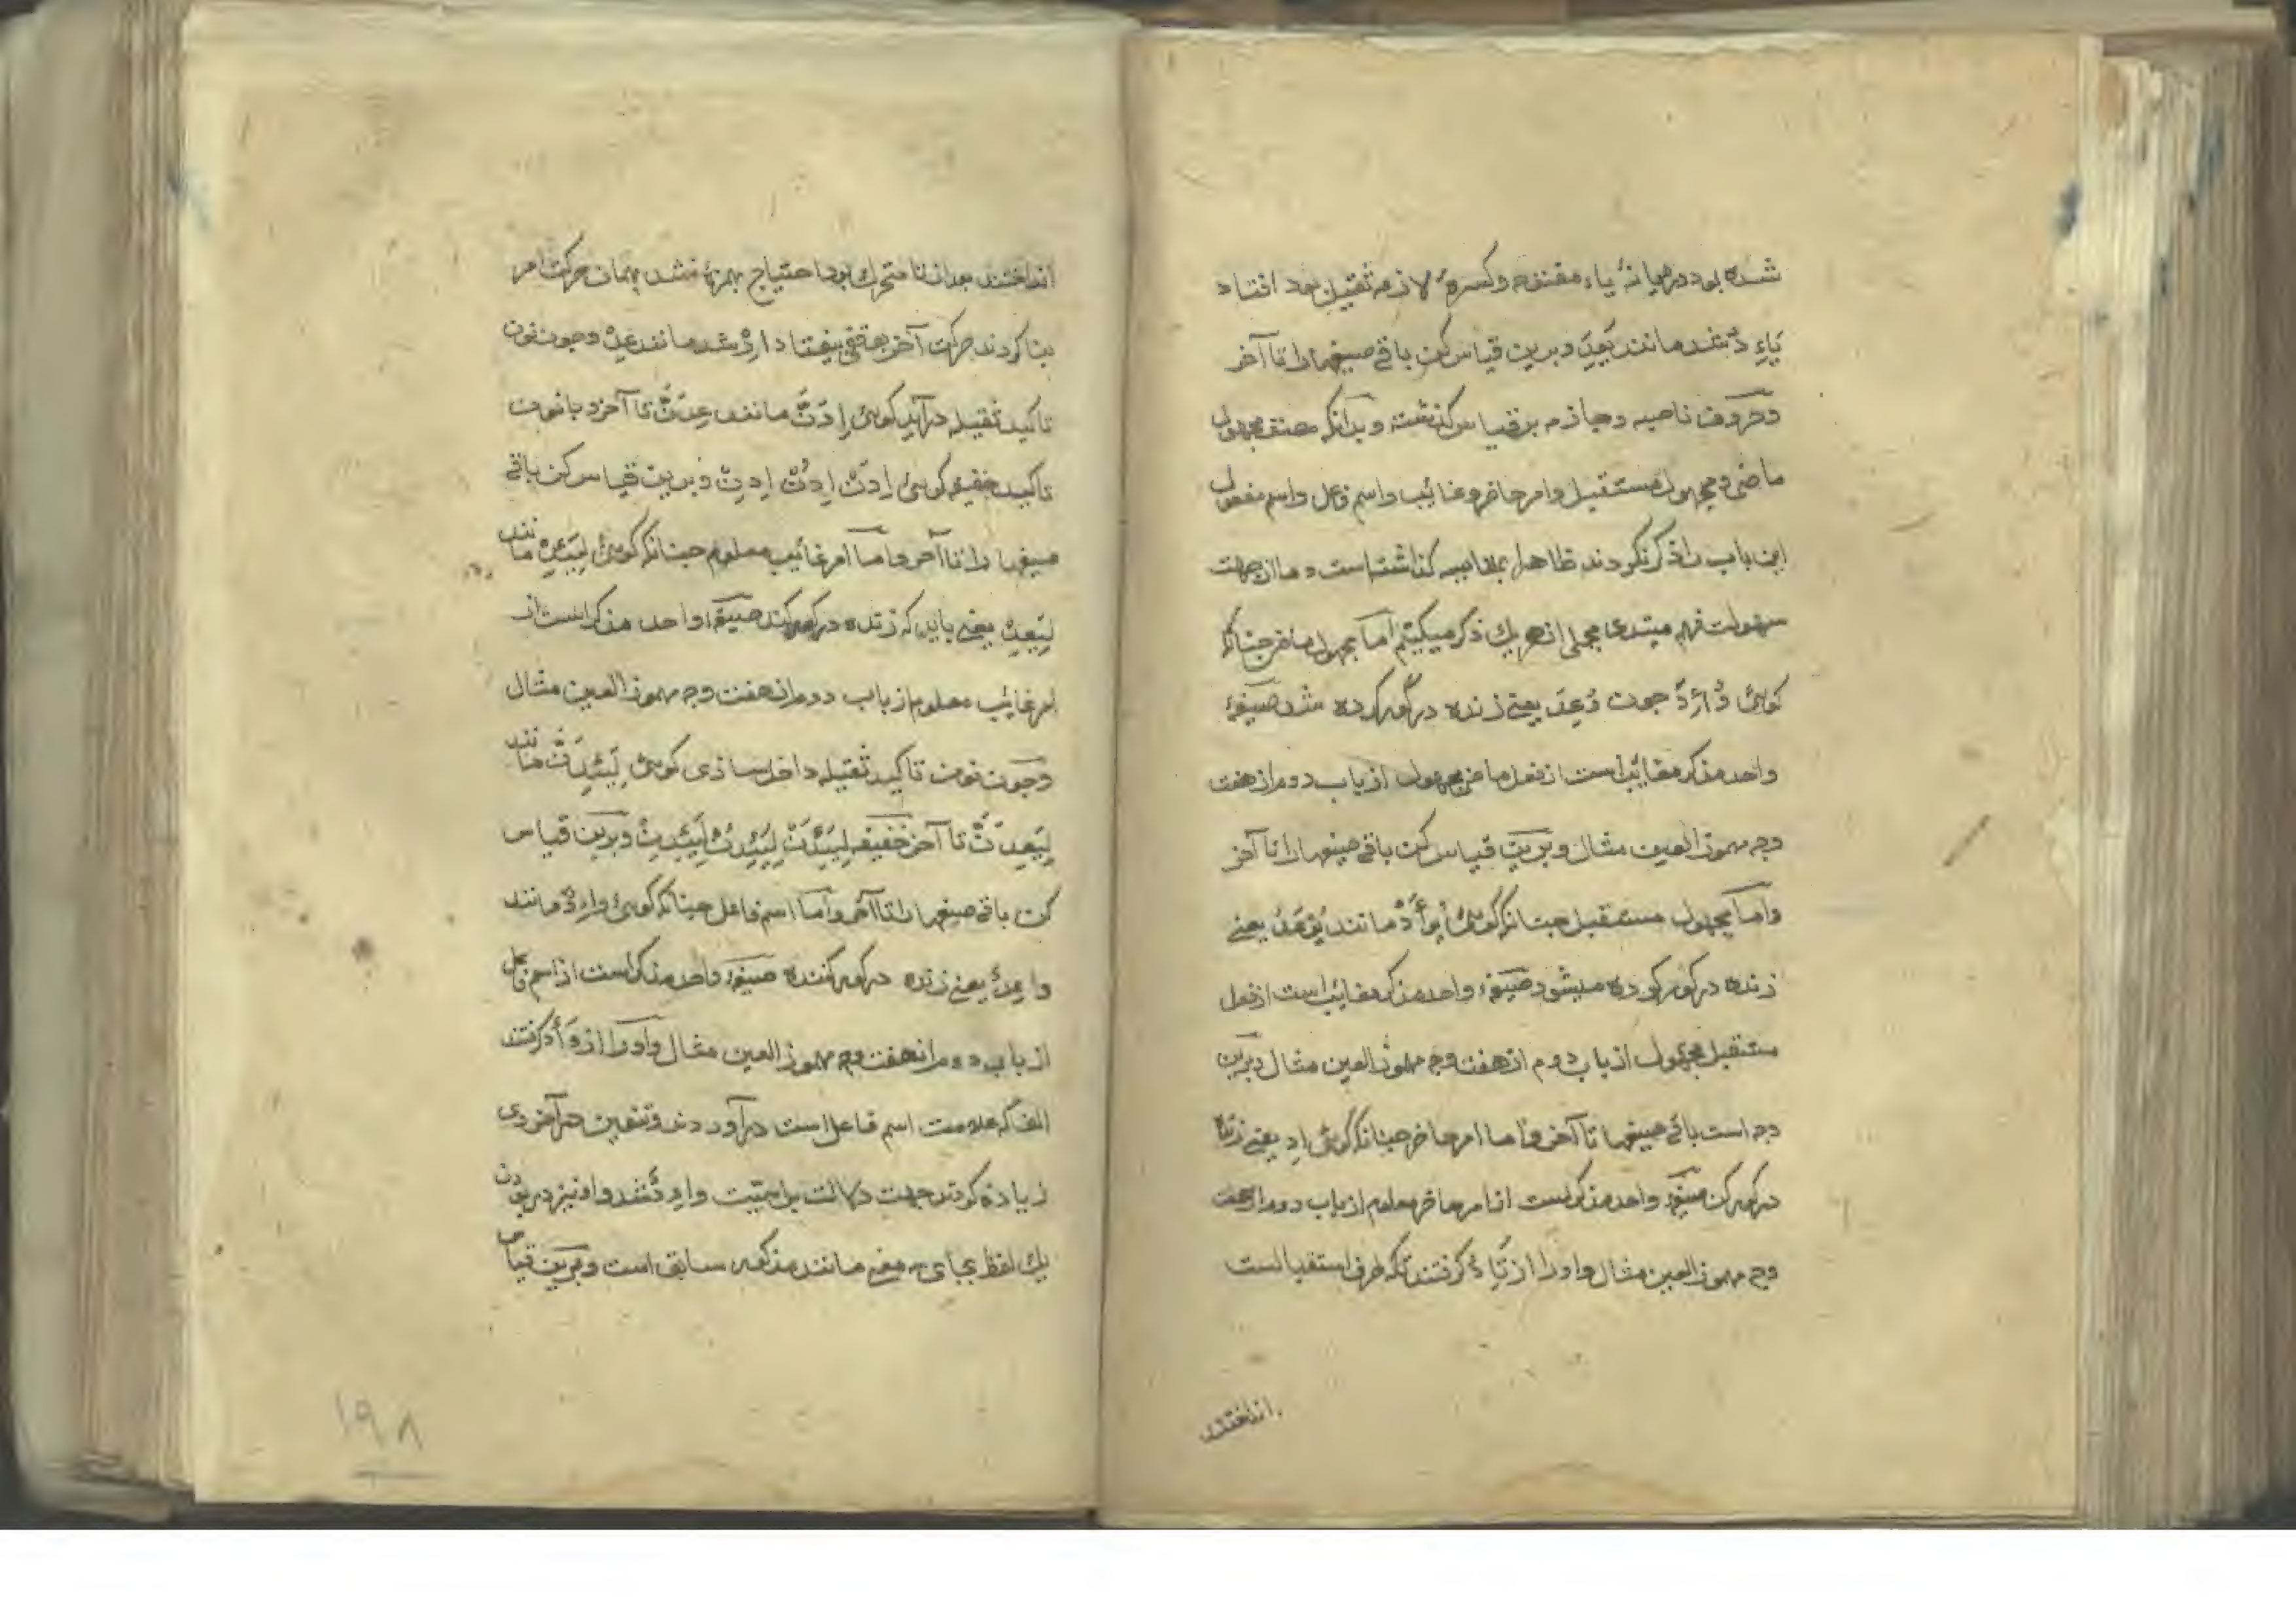 شده بود در میانهٔ یاء مفتوحه و کسرهٔ لازمه ثقیل بود افتاد
یَاءِدُ شد مانند یَعِدُ و برین قیاس کن باقی صیغها را تا آخر
و حروف ناصبه و جازمه بر قیاس گذشته و بدانکه مصنف مجهول
ماضی و مجهول مستقبل و امر حاضر و غائب و اسم فاعل و اسم مفعول
این باب را ذکر نکردند ظاهرا بمقایسه گذاشته است و ما از جهت
سهولت فهم مبتدی مجملی از هر یك ذکر میکنیم اما مجهول ماضی چنانکه
کوئی وُاِدَ چون وُعِدَ یعنی زنده در گور کرده شد صیغهٔ
واحد مذکر مغائب است از فعل ماضی مجهول از باب دوم از هفت
وجه مهموز العین مثال و برین قیاس کن باقی صیغها را تا آخر
و اما مجهول مستقبل چنانکه کوئی یُوأَدُ مانند یُوعَدُ یعنی
زنده در کور کرده میشود صیغهٔ واحد مذکر مغائب است از فعل
مستقبل مجهول از باب دوم از هفت وجه مهموز العین مثال و برین
وجه است باقی صیغها تا آخر و اما امر حاضر چنانکه کوئی اِدِ یعنی زنده
در کور کن صیغهٔ واحد مذکر است از امر حاضر معلوم از باب دوم از هفت
وجه مهموز العین مثال و او را از تَاءِدُ کرفتند تا که حرف استقبالست
انداختند
انداختند بعد از تا متحرك بود احتیاج بهمزه نشد بهمان حرکت امر
بنا کردند حرکت آخر بوقفی بیفتاد اِدْ شد مانند عِدْ و چون نون
تاکید ثقیله در آید کوئی اِدَنَّ مانند عِدَنَّ تا آخر و با نون
تاکید خفیفه کوئی اِدَنْ اِدُنْ اِدِنْ و برین قیاس کن باقی
صیغها را تا آخر و اما امر غائب معلوم چنانکه کوئی لِیَئِدْ مانند
لِیَعِدْ یعنی باید که زنده در کور کند صیغهٔ واحد مذکر است از
امر غائب معلوم از باب دوم از هفت وجه مهموز العین مثال
و چون نون تاکید ثقیله داخل سازی کوئی لِیَئِدَنَّ مانند
لِیَعِدَنَّ تا آخر خفیفه لِیَئِدَنْ لِیَئِدُنْ لِیَئِدِنْ و برین قیاس
کن باقی صیغها را تا آخر و اما اسم فاعل چنانکه کوئی وَاءِدٌ مانند
واعِدٌ یعنی زنده در کور کننده صیغهٔ واحد مذکر است از اسم فاعل
از باب دوم از هفت وجه مهموز العین مثال و او را از وَأَدَ کرفتند
الف که علامت اسم فاعل است در آوردند و تنوین در آخر وی
زیاده کردند جهت دلالت بر اسمیت واءِدٌ شد و او نیز در بودن
یك لفظ بجای سه معنی مانند مذکور سابق است و برین قیاس
١٩٨